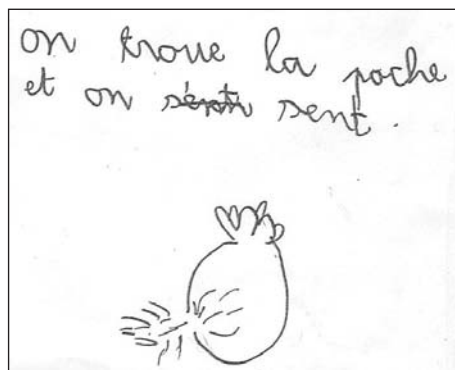 on troue la poche
et on sent.